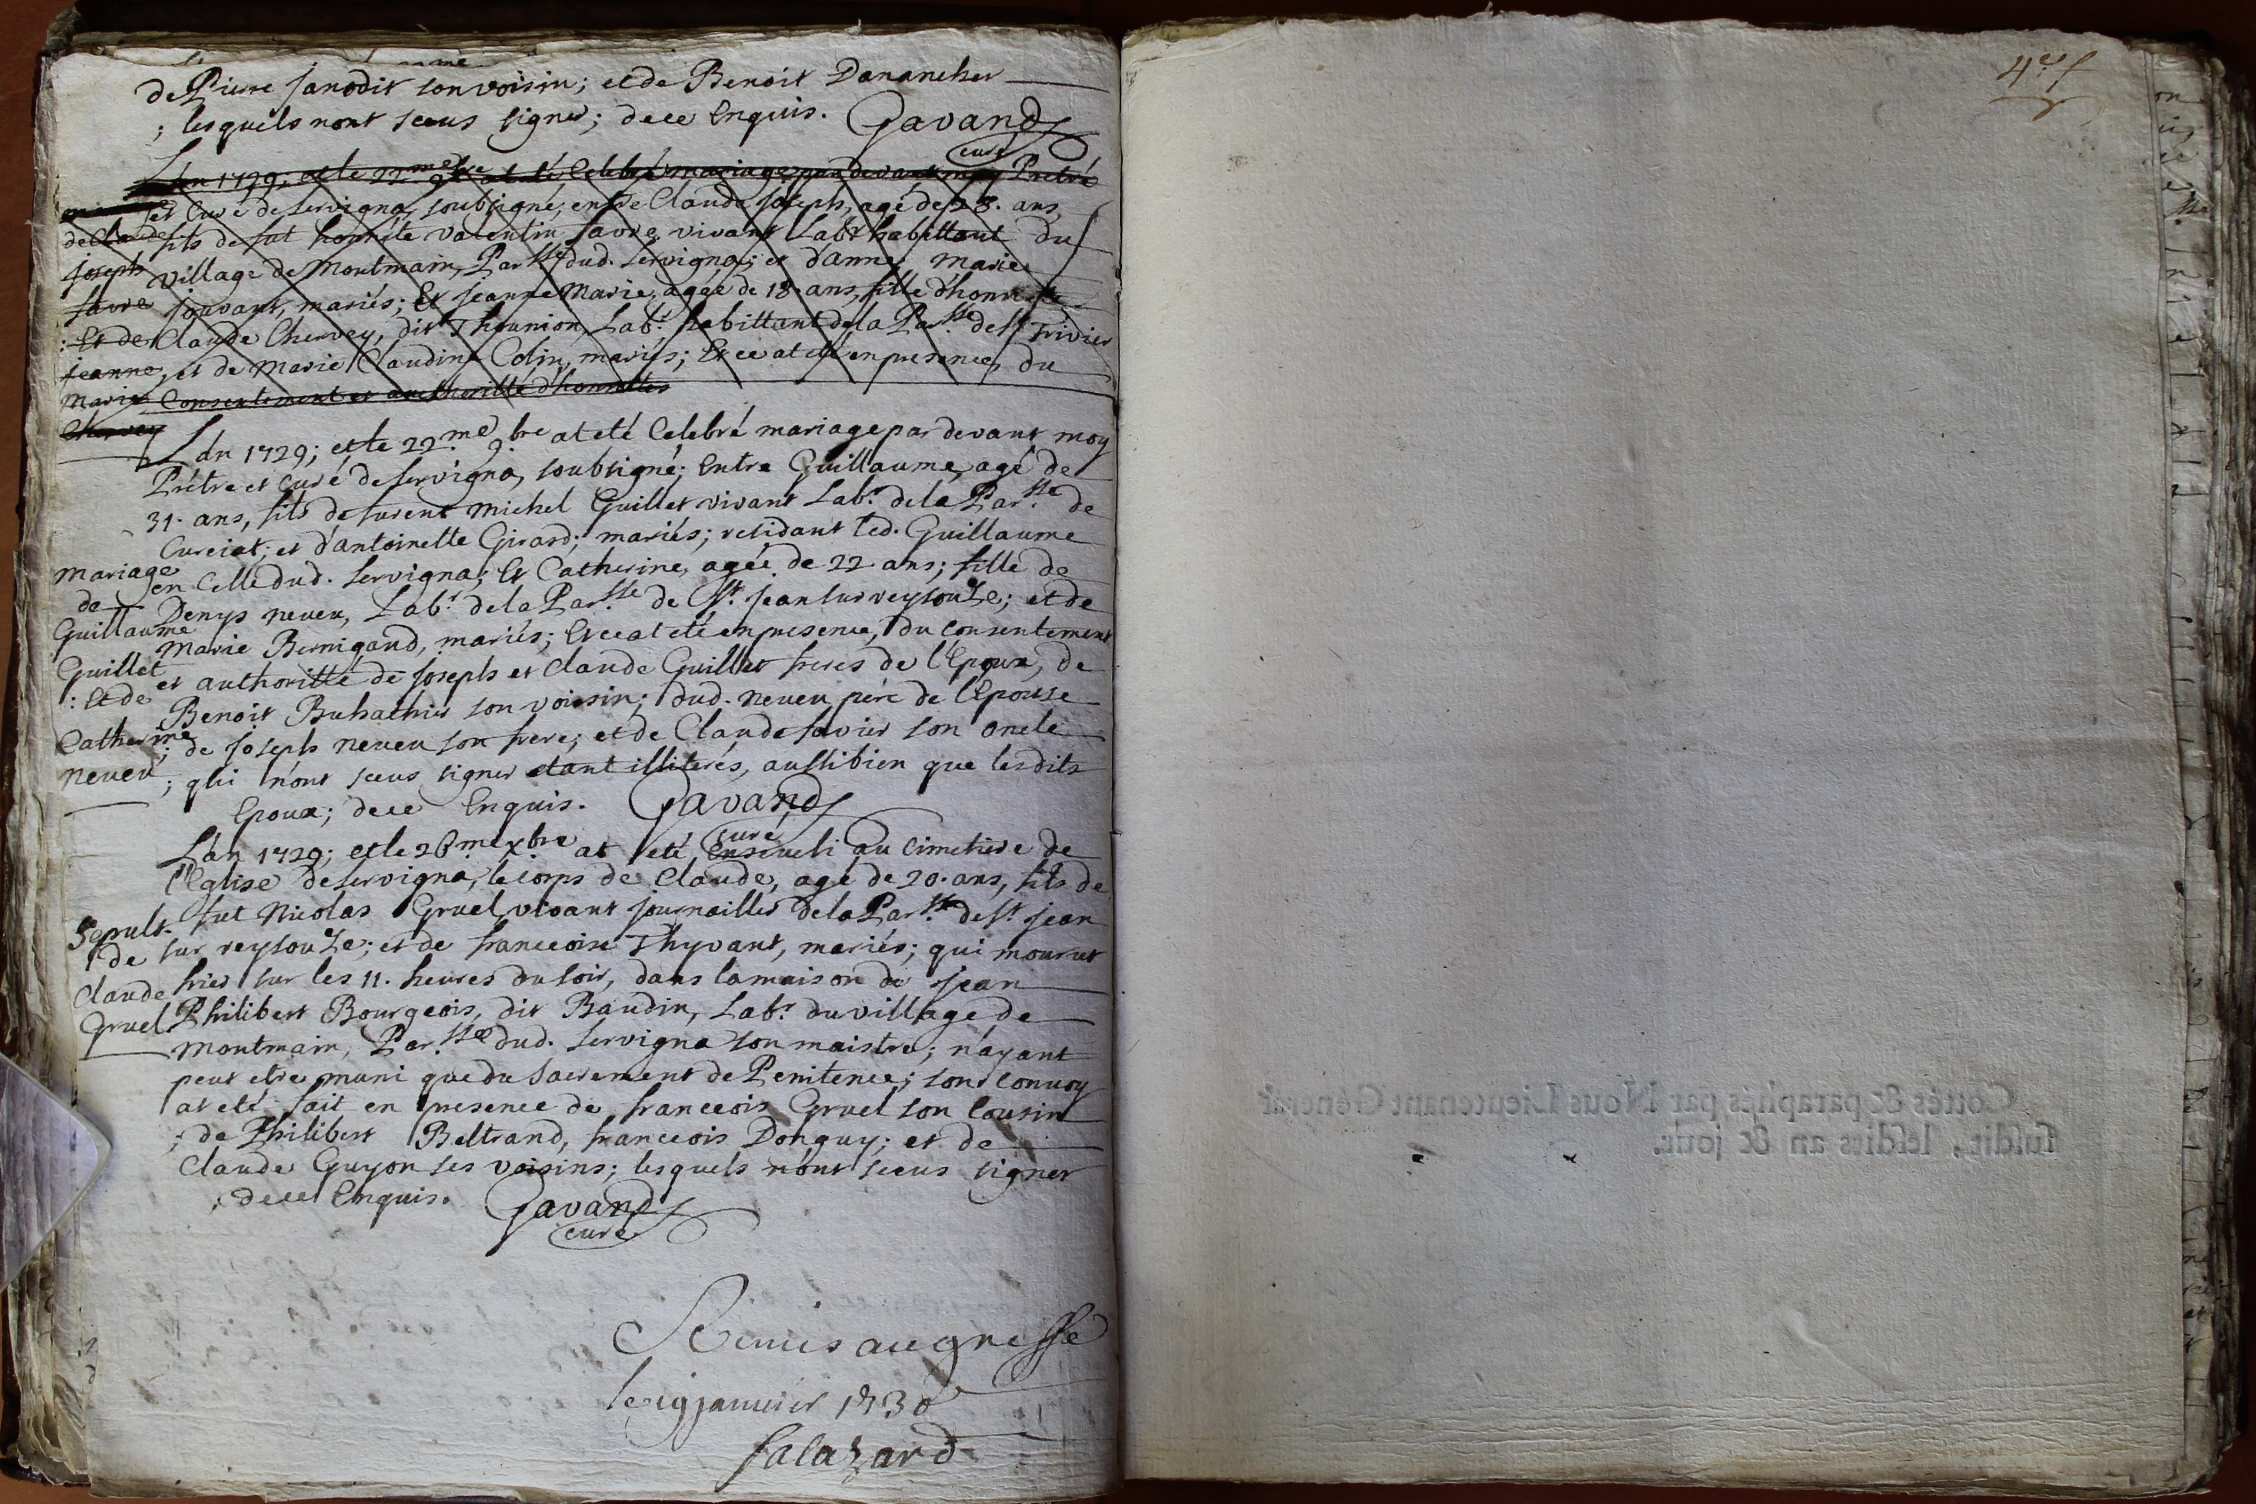 de Pierre Janodit son voisin; et de Benoit Danancher
; lesquels nont sceus signer; de ce Enquis. Gavand
curé
Lan 1729; et le 22.me 9.bre at eté Celebré mariage par devant moy Pretre
et Curé de Servigna, soubsigné, entre Claude Joseph, agé de 28. ans,
fils de fut honnête Valentin favre, vivant Lab.r habittant du
village de Montmain, Par.sse dud. Servigna; et d'anne Marie
Jouvant, mariés; Et Jeanne Marie, agée de 18. ans, fille d'honnête
Claude Chervey, dit Thounion, Lab.r habittant de la Par.sse de St Trivier
et de Marie Claudine Colin, mariés; Et ce at eté en presence, du
Consentement et authoritté d'honnettes
de Claude
Joseph
favre
: Et de
Jeanne
Marie
Chervey
Lan 1729; et le 22.me 9.bre at eté Celebré mariage par devant moy
Prêtre et Curé de Servigna, soubsigné; Entre Guillaume, agé de
31. ans, fils de furent Michel Guillet vivant Lab.r de la Par.sse de
Curciat; et d'antoinette Girard; mariés; residant led. Guillaume
en Celle dud. Servigna; Et Catherine, agée de 22 ans; fille de
Denys neveu, Lab.r de la Par.sse de St. Jean sur reysouze; et de
Marie Bernigaud, mariés; Et ce at eté en presence, du consentement
et authoritté de Joseph et Claude Guillet freres de l'Epoux, de
Benoit Buhathier son voissin; dud. neveu père de l'Epouse
; de Joseph neveu son frere; et de Claude favier son oncle
; qui n'ont sceus signer etant illiterés, aussibien que lesdits
Epoux; de ce Enquis. Gavand
curé
Mariage
de
Guillaume
Guillet
: Et de
Catherine
neveu
Lan 1729; et le 26.me x.bre at eté Enseveli au Cimetiere de
l'Eglise de Servigna, le corps de Claude, agé de 20. ans, fils de
fut Nicolas Gruel, vivant journaillier de la Par.sse de St. Jean
sur reysouze; et de franceoise Thyvant, mariés; qui mourut
hier sur les 11. heures du soir, dans la maison de Jean
Philibert Bourgeois, dit Baudin, Lab.r du village de
Montmain, Par.sse dud. Servigna son maistre; n'ayant
peut etre muni que du Sacrement de Penitence; son convoy
at eté fait en presence de franceois Gruel son Cousin
; de Philibert Beltrand, franceois Donguy; et de
Claude Guyon ses voisins; lesquels n'ont sceus signer
; de ce Enquis. Gavand
curé
Sepult.
de
Claude
Gruel
Remis au greffe
le 19 janvier 1730
Salazard
Cottés & paraphés par Nous Lieutenant Général
susdit, lesdits an & jour.